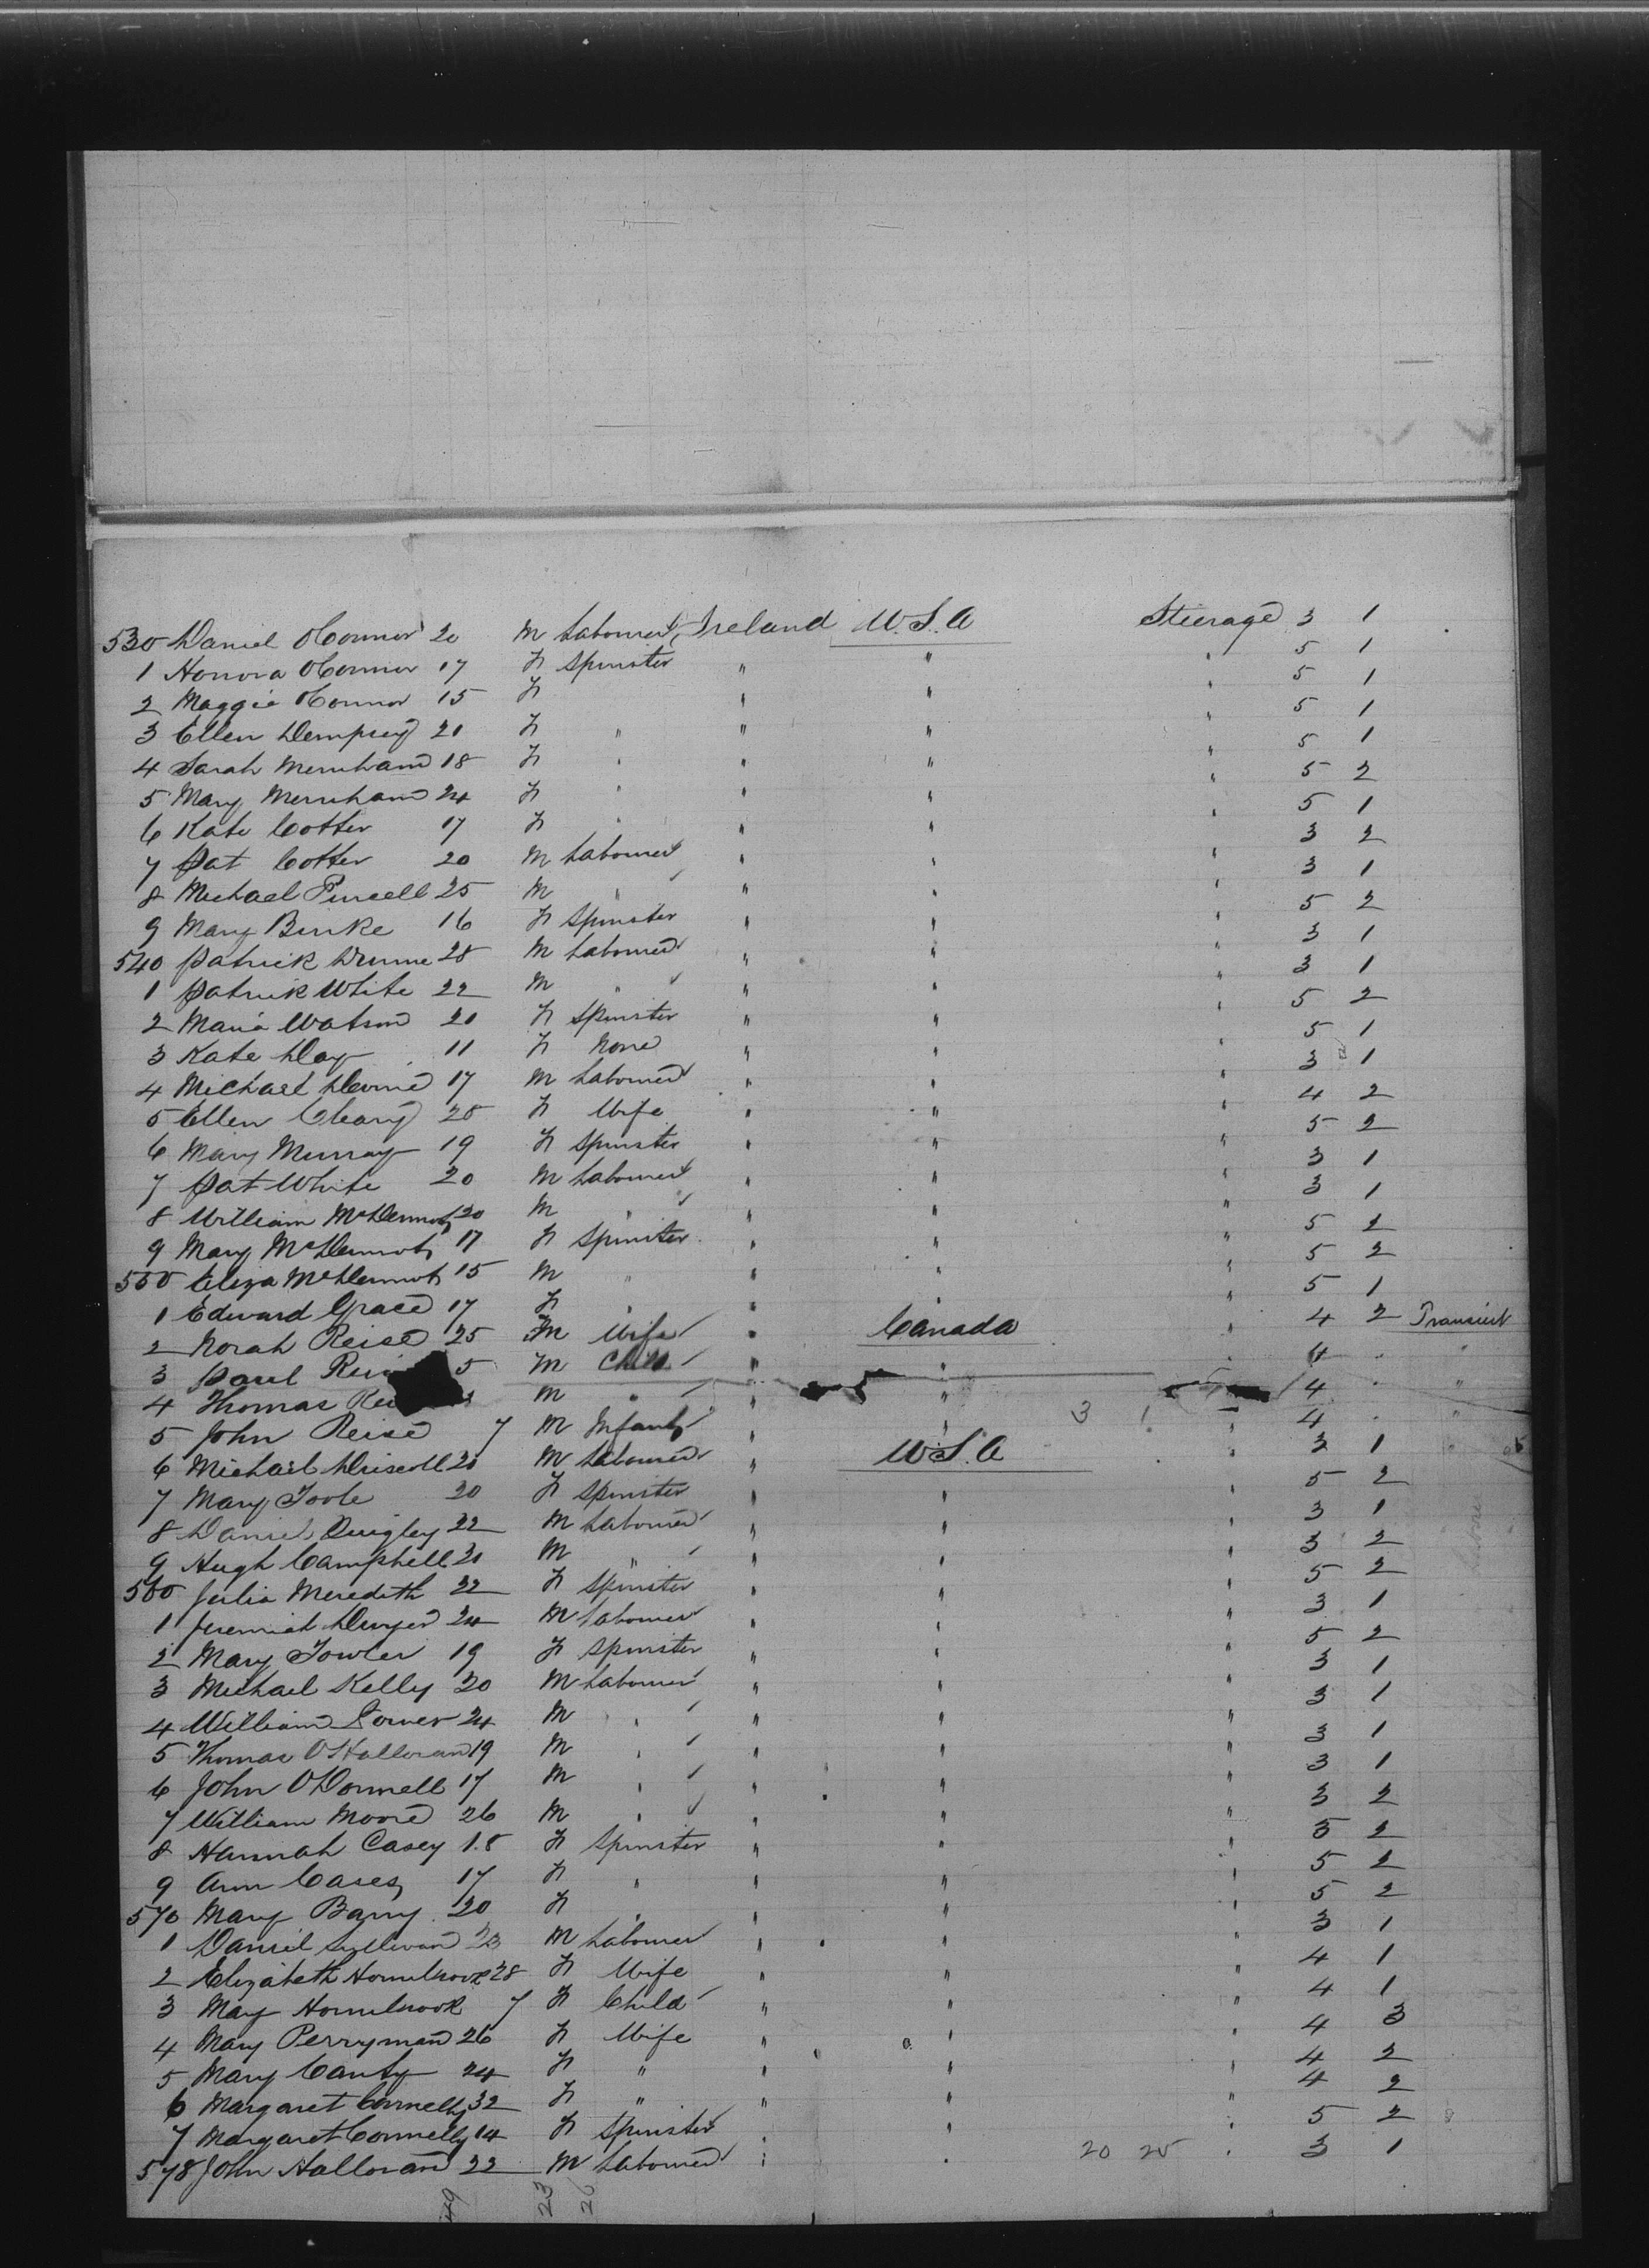 530 Daniel OConnor 20 M Labourer Ireland U.S.A Steerage 3 1
1 Honora OConnor 17 F Spinster " " " 5 1
2 Maggie OConnor 15 F " " " 5 1
3 Ellen Dempsey 20 F " " " " 5 1
4 Sarah 18 F " " " " 5 1
5 Mary 24 F " " " " 5 2
6 Kate Cotter 17 F " " " " 5 1
7 Pat Cotter 20 M Labourer " " " 3 2
8 Michael Purcell 25 M " " " " 3 1
9 Mary Burke 16 F Spinster " " " 5 2
540 Patrick 28 M Labourer " " " 3 1
1 Patrick White 22 M " " " " 3 1
2 Maria Watson 20 F Spinster " " " 5 2
3 Kate Day 11 F None " " " 5 1
4 Michael Devine 17 M Labourer " " " 3 1
5 Ellen Cleary 28 F Wife " " " 4 2
6 Mary Murray 19 F Spinster " " " 5 2
7 Pat White 20 M Labourer " " " 3 1
8 William McDermot 20 M " " " " 3 1
9 Mary McDermot 17 F Spinster " " " 5 2
550 Eliza McDermot 15 M " " " " 5 2
1 Edward Grace 17 F " " " " 5 1
2 Norah Reise 25 M Wife " Canada " 4 2 Transient
3 Paul 5 M Child " " " 4 " "
4 Thomas M " " " " 4 " "
5 John Reise 7 M Infant " " 3 1 " 4 " "
6 Michael Driscoll 20 M Labourer " U.S.A " 3 1
7 Mary Toole 20 F Spinster " " " 5 2
8 Daniel Quigley 22 M Labourer " " " 3 1
9 Hugh Campbell 20 M " " " " 3 2
560 Julia Meredith 22 F Spinster " " " 5 2
1 Jeremiah Dwyer 24 M Labourer " " " 3 1
2 Mary Fowler 19 F Spinster " " " 5 2
3 Michael Kelly 20 M Labourer " " " 3 1
4 William 24 M " " " " 3 1
5 Thomas OHalloran 19 M " " " " 3 1
6 John ODonnell 17 M " " " " 3 1
7 William Moore 26 M " " " " 3 2
8 Hannah Casey 18 F Spinster " " " 5 2
9 Ann Casey 17 F " " " " 5 2
570 Mary Barry 20 F " " " " 5 2
1 Daniel Sullivan 23 M Labourer " " " 3 1
2 Elizabeth Hornibrook 28 F Wife " " " 4 1
3 May Hornibrook 7 F Child " " " 4 1
4 Mary Perryman 26 F Wife " " " 4 3
5 Mary Canty 24 F " " " " 4 2
6 Margaret Connelly 32 F " " " " 4 2
7 Margaret Connelly 14 F Spinster " " " 5 2
578 John Halloran 22 M Labourer " " 20 25 " 3 1
49 23 26